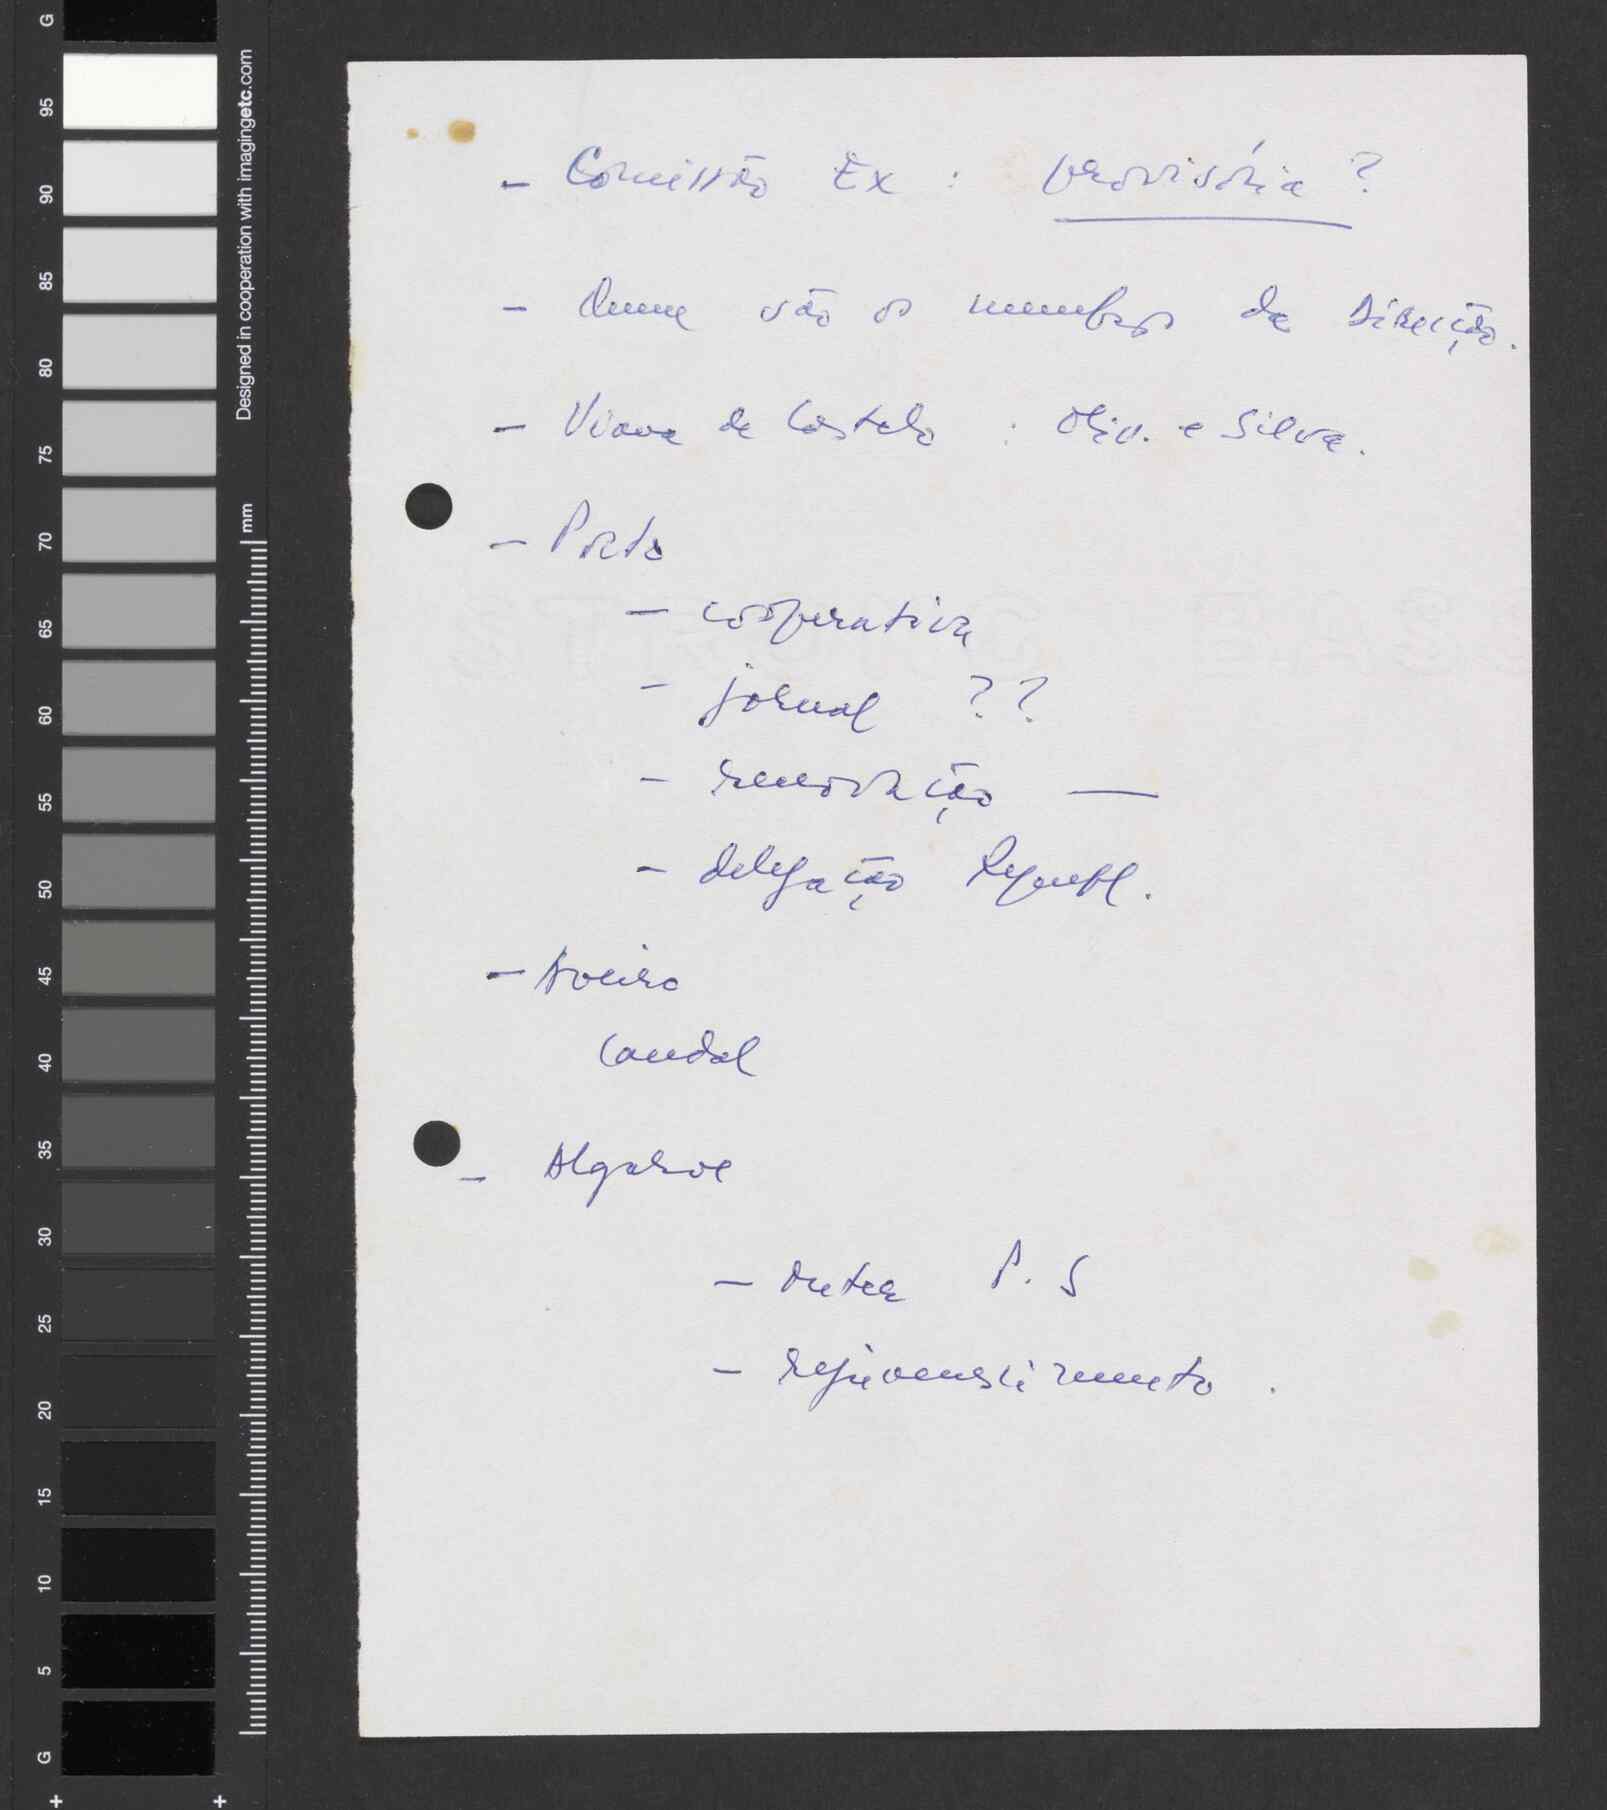 - Comissão Ex : provisória ?
- Quem são os membros da Direcção.
- Viana de Castelo : Oliv. e Silva.
- Porto
- cooperativa
- jornal ??
- renovação —
- delegação Republ.
- Aveiro
Candal
- Algarve
- P. S
- rejuvenescimento .
G
95
90
85
80
75
70
65
60
55
50
45
40
35
30
25
20
15
10
5
G
Designed in cooperation with imagingetc.com
mm